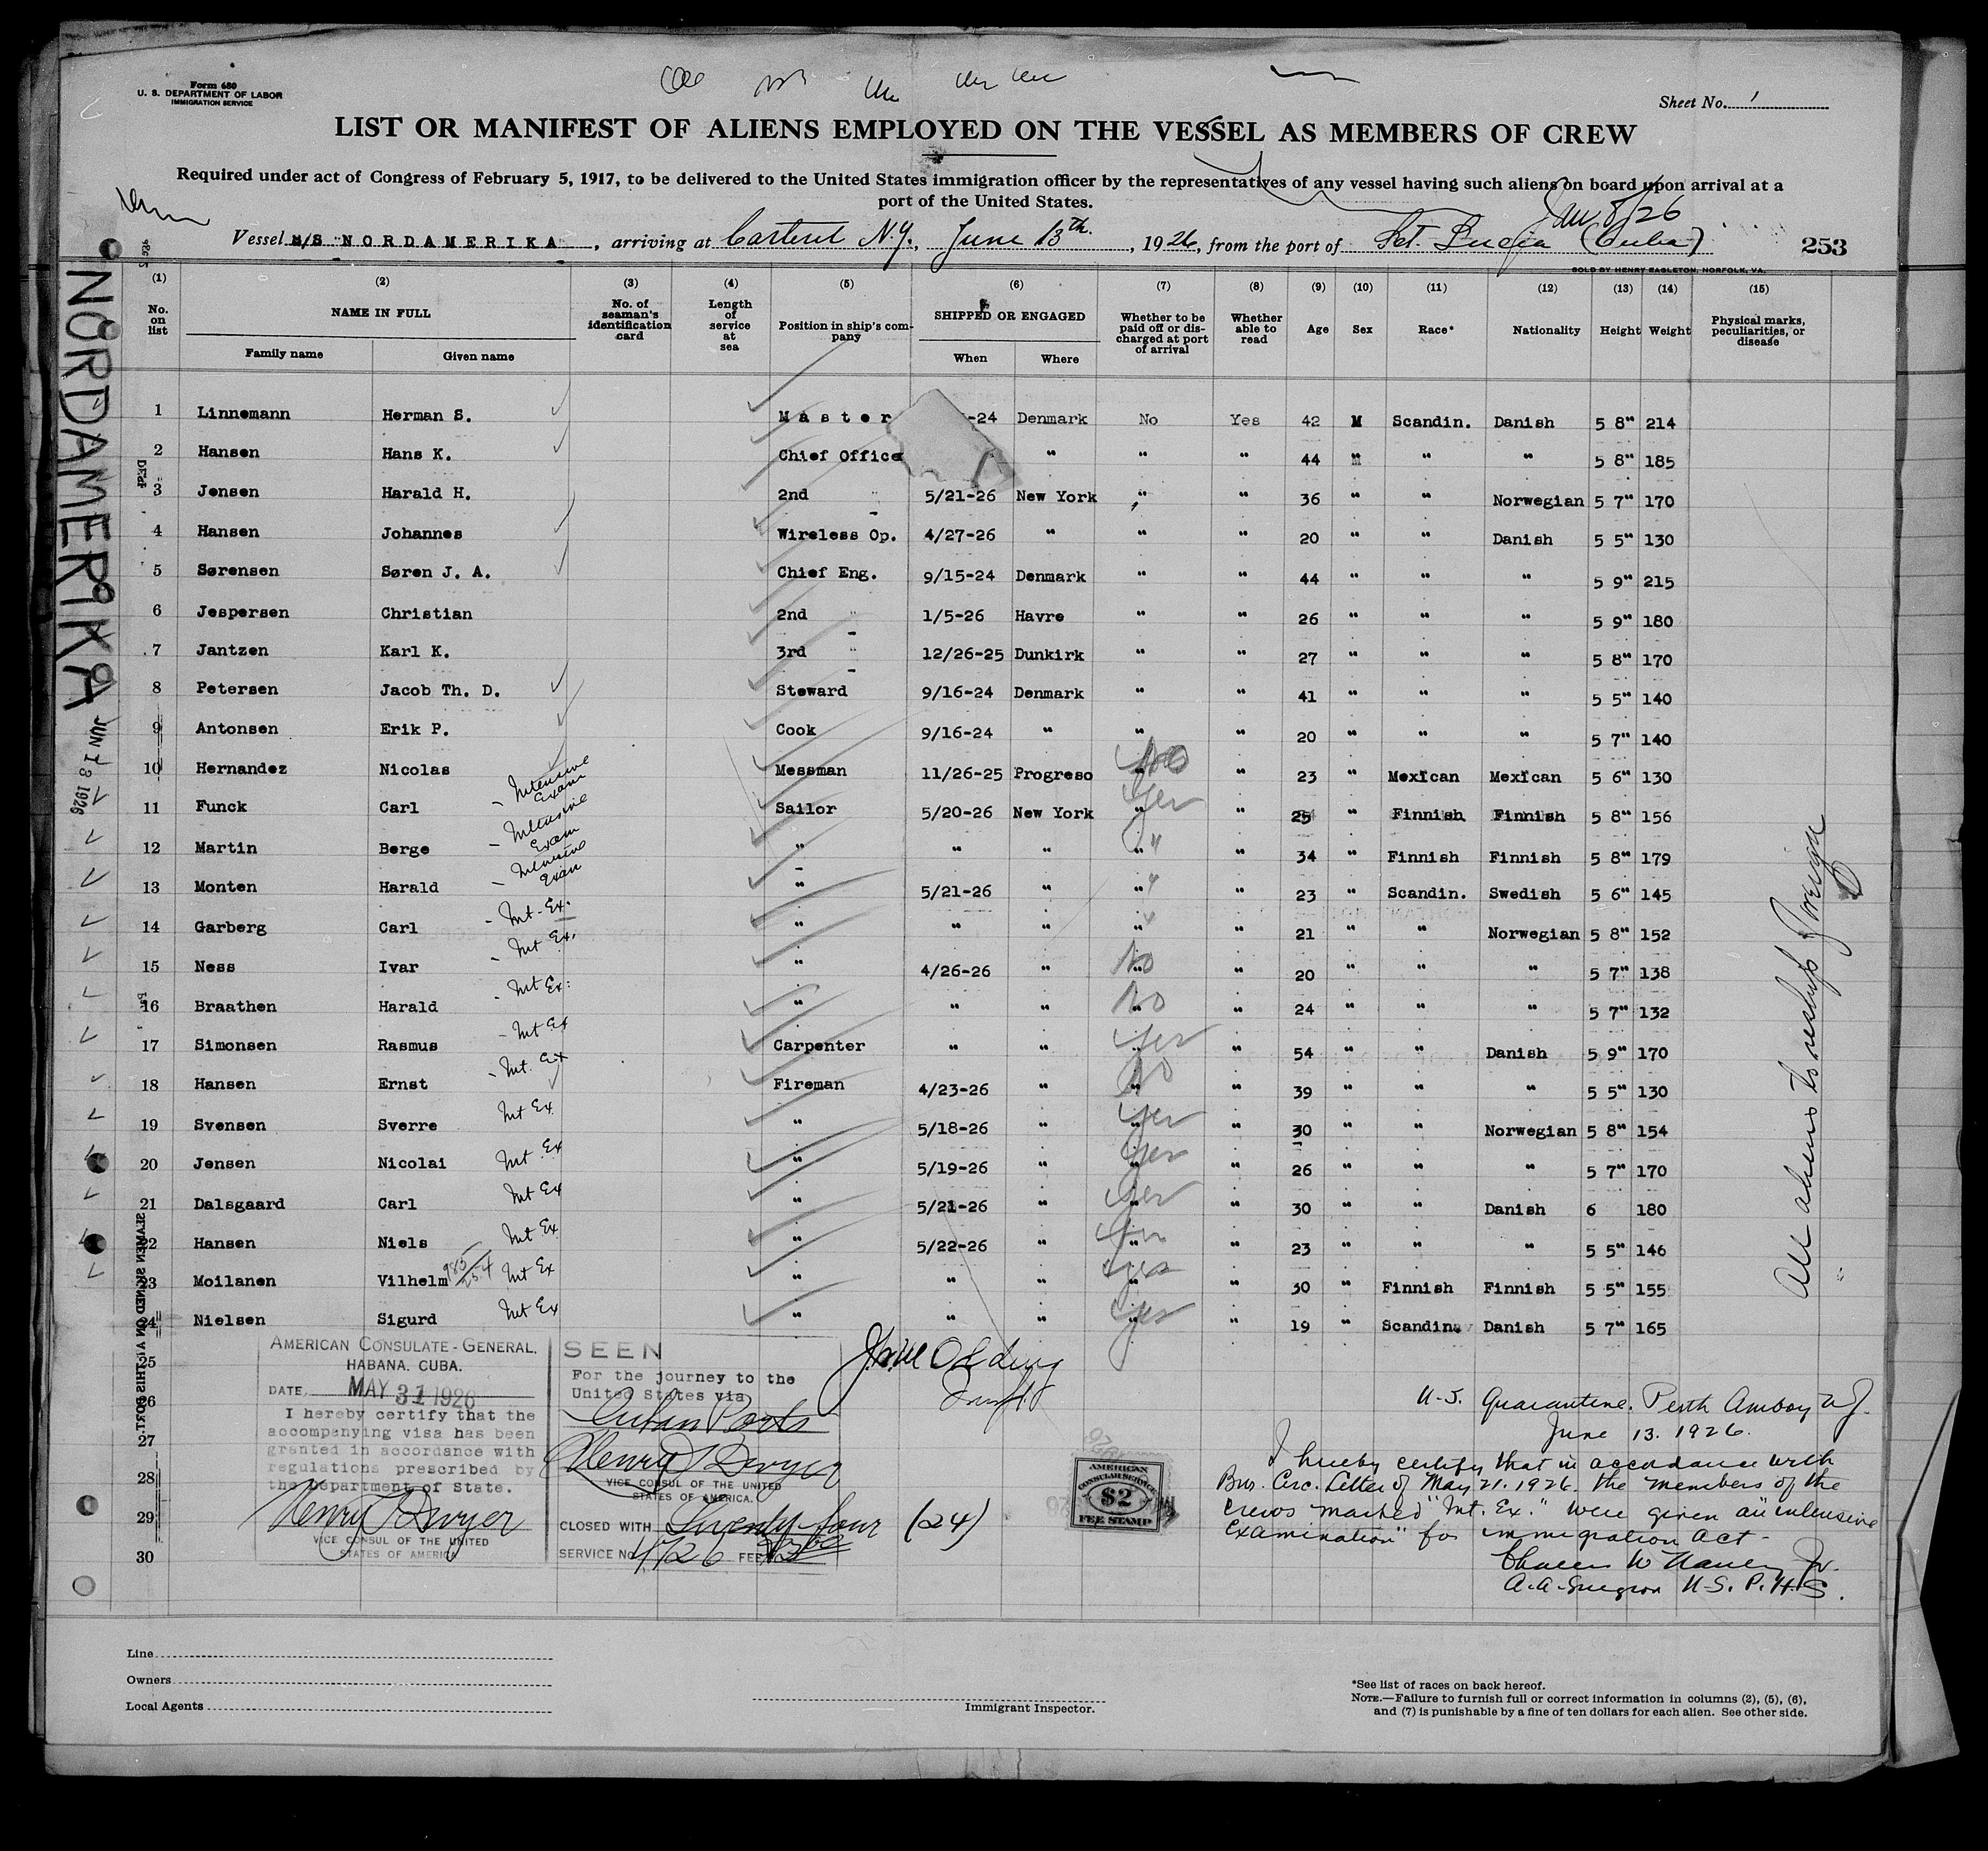 Form 680
U. S. DEPARTMENT OF LABOR
IMMIGRATION SERVICE
Sheet No. 1
LIST OR MANIFEST OF ALIENS EMPLOYED ON THE VESSEL AS MEMBERS OF CREW
Required under act of Congress of February 5, 1917, to be delivered to the United States immigration officer by the representatives of any vessel having such aliens on board upon arrival at a
port of the United States.
Vessel M/S NORDAMERIKA, arriving at Carteret N.Y., June 13th, 1926, from the port of Sct. Lucia (Cuba)
253
SOLD BY HENRY EAGLETON, NORFOLK, VA.
NORDAMERIKA
JUN 13 1926
(1) (2) (3) (4) (5) (6) (7) (8) (9) (10) (11) (12) (13) (14) (15)
No. on list
NAME IN FULL
Family name Given name
No. of seaman's identification card
Length of service at sea
Position in ship's company
SHIPPED OR ENGAGED
When Where
Whether to be paid off or discharged at port of arrival
Whether able to read
Age
Sex
Race*
Nationality
Height
Weight
Physical marks, peculiarities, or disease
1 Linnemann Herman S. Master -24 Denmark No Yes 42 M Scandin. Danish 5 8" 214
2 Hansen Hans K. Chief Office " " " 44 " " " 5 8" 185
3 Jensen Harald H. 2nd " 5/21-26 New York " " 36 " " Norwegian 5 7" 170
4 Hansen Johannes Wireless Op. 4/27-26 " " " 20 " " Danish 5 5" 130
5 Sørensen Søren J. A. Chief Eng. 9/15-24 Denmark " " 44 " " " 5 9" 215
6 Jespersen Christian 2nd " 1/5-26 Havre " " 26 " " " 5 9" 180
7 Jantzen Karl K. 3rd " 12/26-25 Dunkirk " " 27 " " " 5 8" 170
8 Petersen Jacob Th. D. Steward 9/16-24 Denmark " " 41 " " " 5 5" 140
9 Antonsen Erik P. Cook 9/16-24 " " " 20 " " " 5 7" 140
10 Hernandez Nicolas Messman 11/26-25 Progreso " No " 23 " Mexican Mexican 5 6" 130
11 Funck Carl - Intensive Exam Sailor 5/20-26 New York " Yes " 25 " Finnish Finnish 5 8" 156
12 Martin Berge - Intensive Exam " " " " " " 34 " Finnish Finnish 5 8" 179
13 Monten Harald - Intensive Exam " 5/21-26 " " " " 23 " Scandin. Swedish 5 6" 145
14 Garberg Carl - Int - Ex. " " " " " " 21 " " Norwegian 5 8" 152
15 Ness Ivar - Int Ex. " 4/26-26 " " No " 20 " " " 5 7" 138
16 Braathen Harald - Int Ex. " " " " No " 24 " " " 5 7" 132
17 Simonsen Rasmus - Int Ex Carpenter " " " Yes " 54 " " Danish 5 9" 170
18 Hansen Ernst - Int. Ex Fireman 4/23-26 " " No " 39 " " " 5 5" 130
19 Svensen Sverre Int Ex. " 5/18-26 " " Yes " 30 " " Norwegian 5 8" 154
20 Jensen Nicolai Int Ex " 5/19-26 " " Yes " 26 " " " 5 7" 170
21 Dalsgaard Carl Int Ex " 5/21-26 " " Yes " 30 " " Danish 6 180
22 Hansen Niels Int Ex " 5/22-26 " " Yes " 23 " " " 5 5" 146
23 Moilanen Vilhelm Int Ex " " " " Yes " 30 " Finnish Finnish 5 5" 155
24 Nielsen Sigurd Int Ex " " " " Yes " 19 " Scandin. Danish 5 7" 165
25
26
27
28
29
30
All aliens to reship foreign
SEAMEN SIGNED ON AT THIS PORT.
AMERICAN CONSULATE-GENERAL.
HABANA, CUBA.
DATE, MAY 31 1926
I hereby certify that the
accompanying visa has been
granted in accordance with
regulations prescribed by
the Department of State.
Henry T Dwyer
VICE CONSUL OF THE UNITED
STATES OF AMERICA
SEEN
For the journey to the
United States via
Cuban Ports
Henry T Dwyer
VICE CONSUL OF THE UNITED
STATES OF AMERICA.
CLOSED WITH Twenty-four (24)
SERVICE No. 4726 FEE
AMERICAN
CONSULAR SERVICE
$2
FEE STAMP
U.S. Quarantine. Perth Amboy N.J.
June 13. 1926.
I hereby certify that in accordance with
Bur. Circ. Letter of May 21. 1926. the members of the
crews marked "Int. Ex." were given an "intensive
examination" for immigration act -
A.A. Surgeon U.S. P.H.S.
Line
Owners
Local Agents
Immigrant Inspector.
*See list of races on back hereof.
NOTE.—Failure to furnish full or correct information in columns (2), (5), (6),
and (7) is punishable by a fine of ten dollars for each alien. See other side.